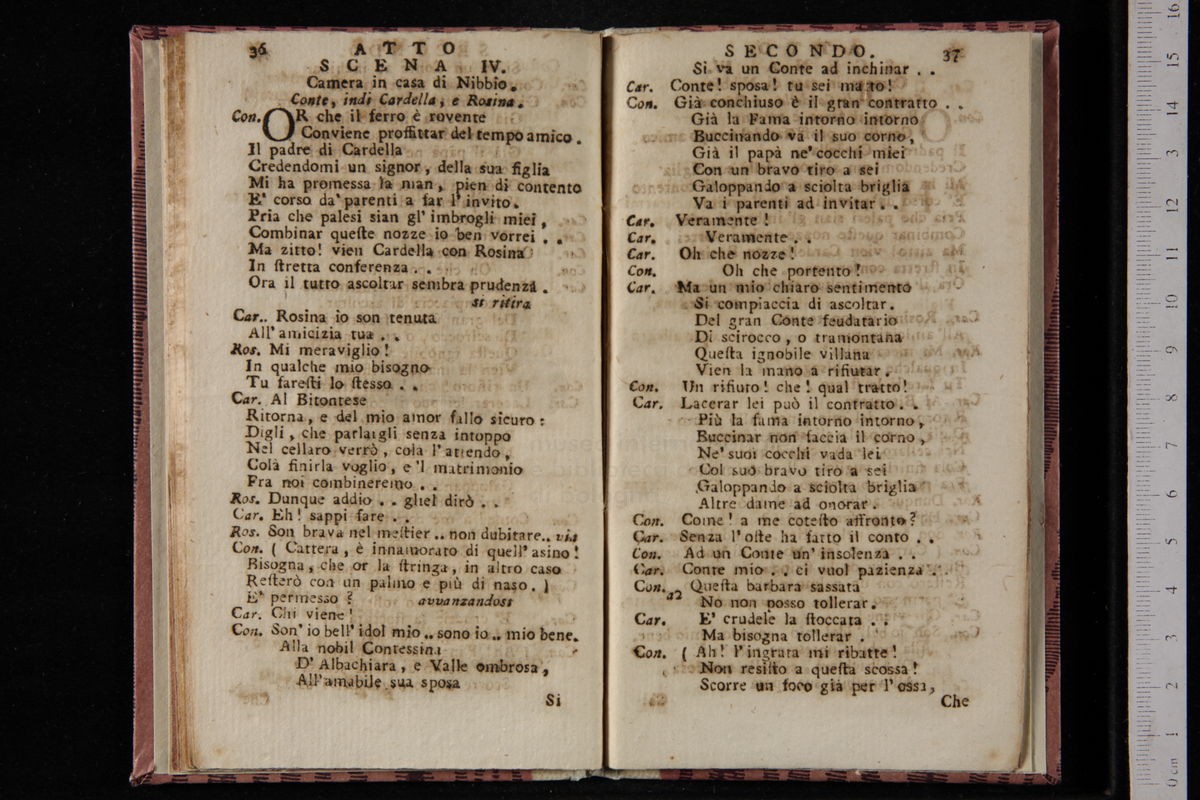 36
ATTO
SCENA IV.
Camera in casa di Nibbio.
Conte, indi Cardella, e Rosina.
Con. OR che il ferro è rovente
Conviene proffittar del tempo amico.
Il padre di Cardella
Credendomi un signor, della sua figlia
Mi ha promessa la man, pien di contento
E' corso da' parenti a far l'invito.
Pria che palesi sian gl' imbrogli miei,
Combinar queſte nozze io ben vorrei . .
Ma zitto! vien Cardella con Rosina
In ſtretta conferenza . .
Ora il tutto ascoltar sembra prudenza.
si ritira
Car.. Rosina io son tenuta
All' amicizia tua . .
Ros. Mi meraviglio!
In qualche mio bisogno
Tu fareſti lo ſtesso . .
Car. Al Bitontese
Ritorna, e del mio amor fallo sicuro:
Digli, che parlargli senza intoppo
Nel cellaro verrò, colà l'attendo,
Colà finirla voglio, e 'l matrimonio
Fra noi combineremo . .
Ros. Dunque addio . . gliel dirò . .
Car. Eh! sappi fare . .
Ros. Son brava nel meſtier .. non dubitare.. via
Con. ( Cattera, è innamorato di quell' asino!
Bisogna, che or la ſtringa, in altro caso
Reſterò con un palmo e più di naso. )
E' permesso ? avvanzandosi
Car. Chi viene!
Con. Son' io bell' idol mio .. sono io .. mio bene.
Alla nobil Contessina
D' Albachiara, e Valle ombrosa,
All' amabile sua sposa
Si
SECONDO.
37
Si va un Conte ad inchinar . .
Car. Conte! sposa! tu sei matto!
Con. Già conchiuso è il gran contratto . .
Già la Fama intorno intorno
Buccinando va il suo corno,
Già il papà ne' cocchi miei
Con un bravo tiro a sei
Galoppando a sciolta briglia
Va i parenti ad invitar . .
Car. Veramente!
Car. Veramente . .
Car. Oh che nozze!
Con. Oh che portento!
Car. Ma un mio chiaro sentimento
Si compiaccia di ascoltar.
Del gran Conte feudatario
Di scirocco, o tramontana
Queſta ignobile villana
Vien la mano a rifiutar.
Con. Un rifiuto! che! qual tratto!
Car. Lacerar lei può il contratto . .
Più la fama intorno intorno,
Buccinar non faccia il corno,
Ne' suoi cocchi vada lei
Col suo bravo tiro a sei
Galoppando a sciolta briglia
Altre dame ad onorar.
Con. Come! a me coteſto affronto?
Car. Senza l' oſte ha fatto il conto . .
Con. Ad un Conte un' insolenza . .
Car. Conte mio . . ci vuol pazienza . .
Con. a2 Queſta barbara sassata
No non posso tollerar.
Car. E' crudele la ſtoccata . .
Ma bisogna tollerar .
Con. ( Ah! l' ingrata mi ribatte!
Non resiſto a queſta scossa!
Scorre un foco già per l' ossa,
Che